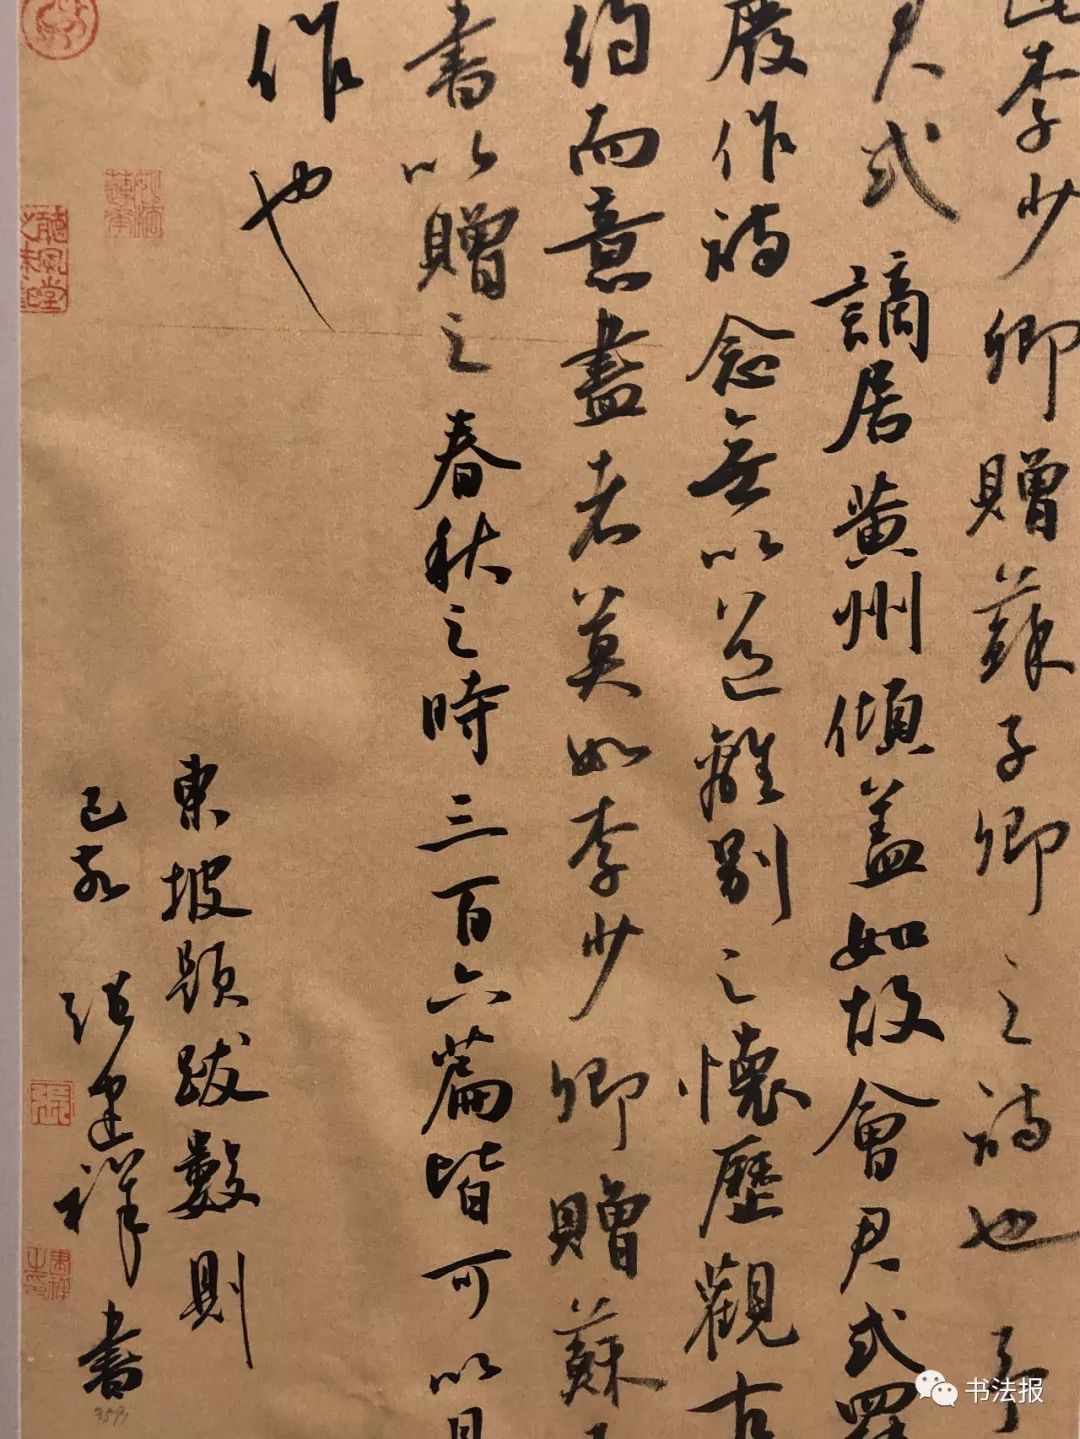 此李少卿贈蘇子卿之詩也予
君式謫居黄州傾蓋如故會君式罷
嚴作詩念無以道離别之懷歷觀古
約而意盡者莫如李少卿贈蘇子
書以贈之春秋之時三百六篇皆可以見
作也
東坡題跋數則
己亥 張建祥書
3591
书法报